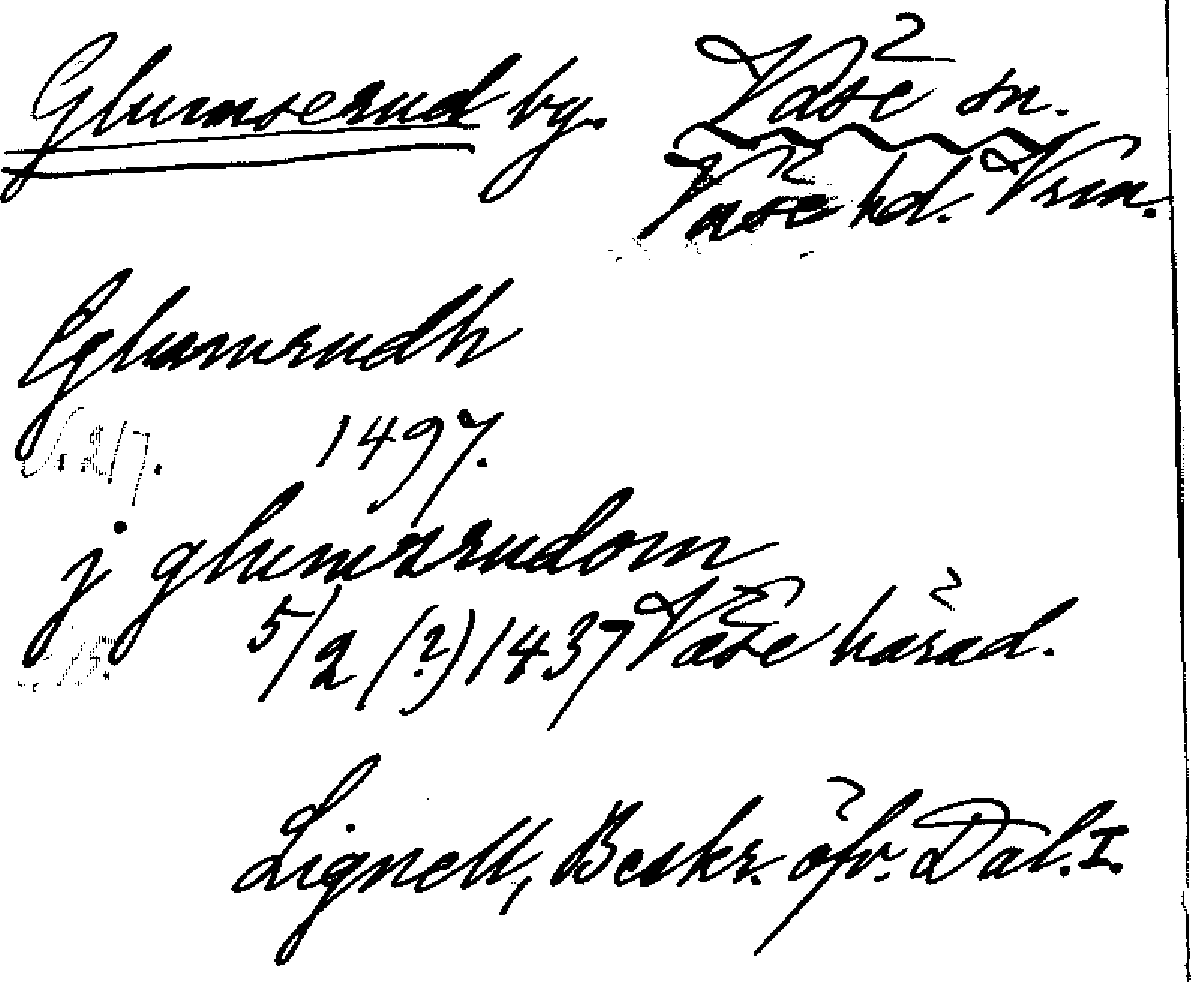 Glumserud by. Väse sn.
Väse hd. Vrm.
Eglumsrudh
S. 217. 1497.
j glumsrudom
5/2 (?) 1437 Väse härad.
Lignell, Beskr. öfv. Dal. I.